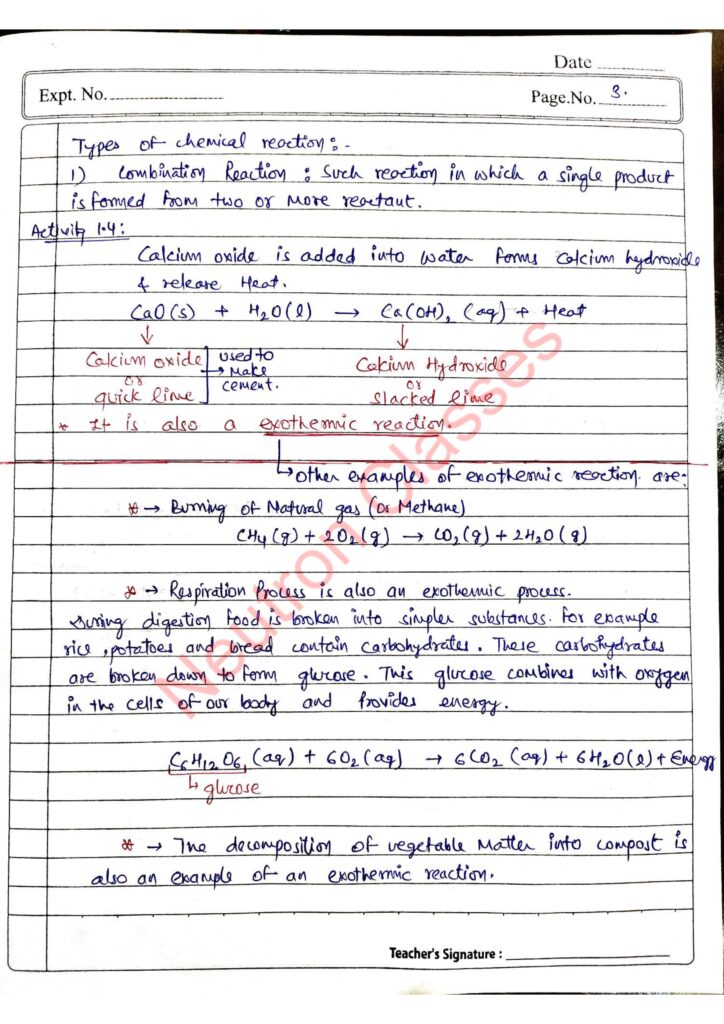 Date
Expt. No.
Page.No. 3.
Types of chemical reaction:-
1) Combination Reaction : Such reaction in which a single product
is formed from two or more reactant.
Activity 1.4:
Calcium oxide is added into water forms calcium hydroxide
& release Heat.
CaO(s) + H₂O(l) → Ca(OH)₂ (aq) + Heat
Calcium oxide
or
quick lime
used to
→ Make
cement.
Calcium Hydroxide
or
slacked lime
* It is also a exothermic reaction.
↳ other examples of exothermic reaction are:
* → Burning of Natural gas (or Methane)
CH4(g) + 2O₂(g) → CO₂(g) + 2H₂O(g)
* → Respiration Process is also an exothermic process.
During digestion food is broken into simpler substances. For example
rice, potatoes and bread contain carbohydrates. These carbohydrates
are broken down to form glucose. This glucose combines with oxygen
in the cells of our body and provides energy.
C6H12O6 (aq) + 6O2(aq) → 6CO2 (aq) + 6H2O(l) + Energy
↳ glucose
* → The decomposition of vegetable matter into compost is
also an example of an exothermic reaction.
Teacher's Signature :
Neutron Classes